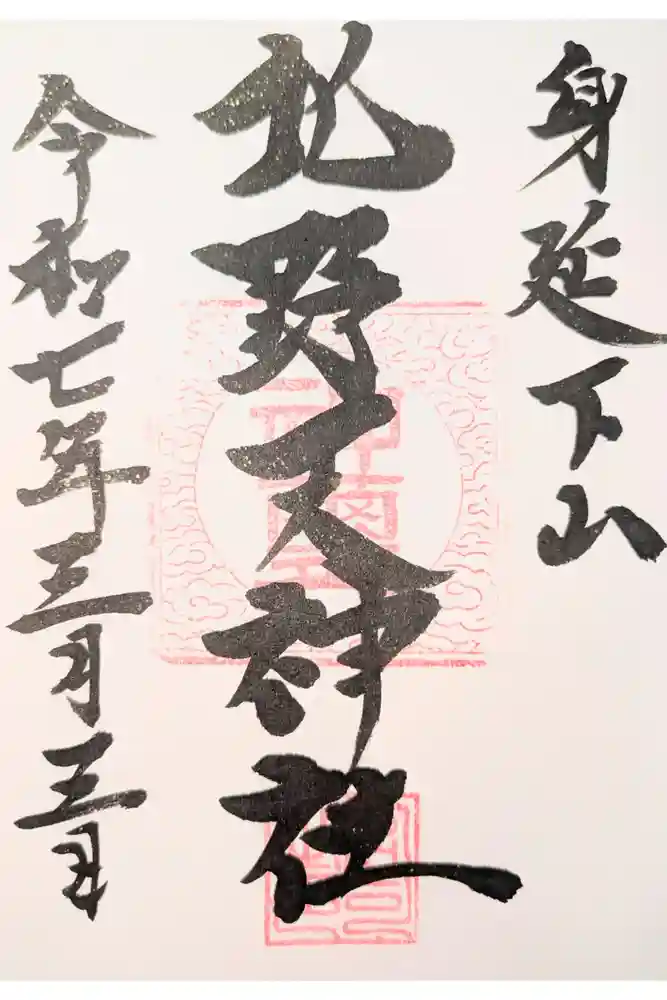 身延下山
北野天神社
令和七年三月三日